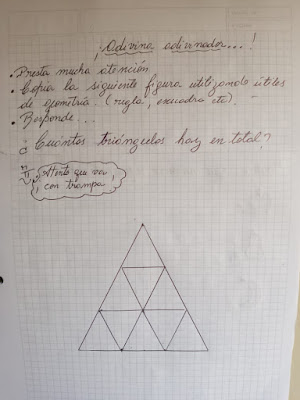 ¡Adivina adivinador...!
• Presta mucha atención
• Copia la siguiente figura utilizando útiles
de geometría. (regla, escuadra etc).
• Responde...
¿Cuántos triángulos hay en total?
Atento que va
con trampa